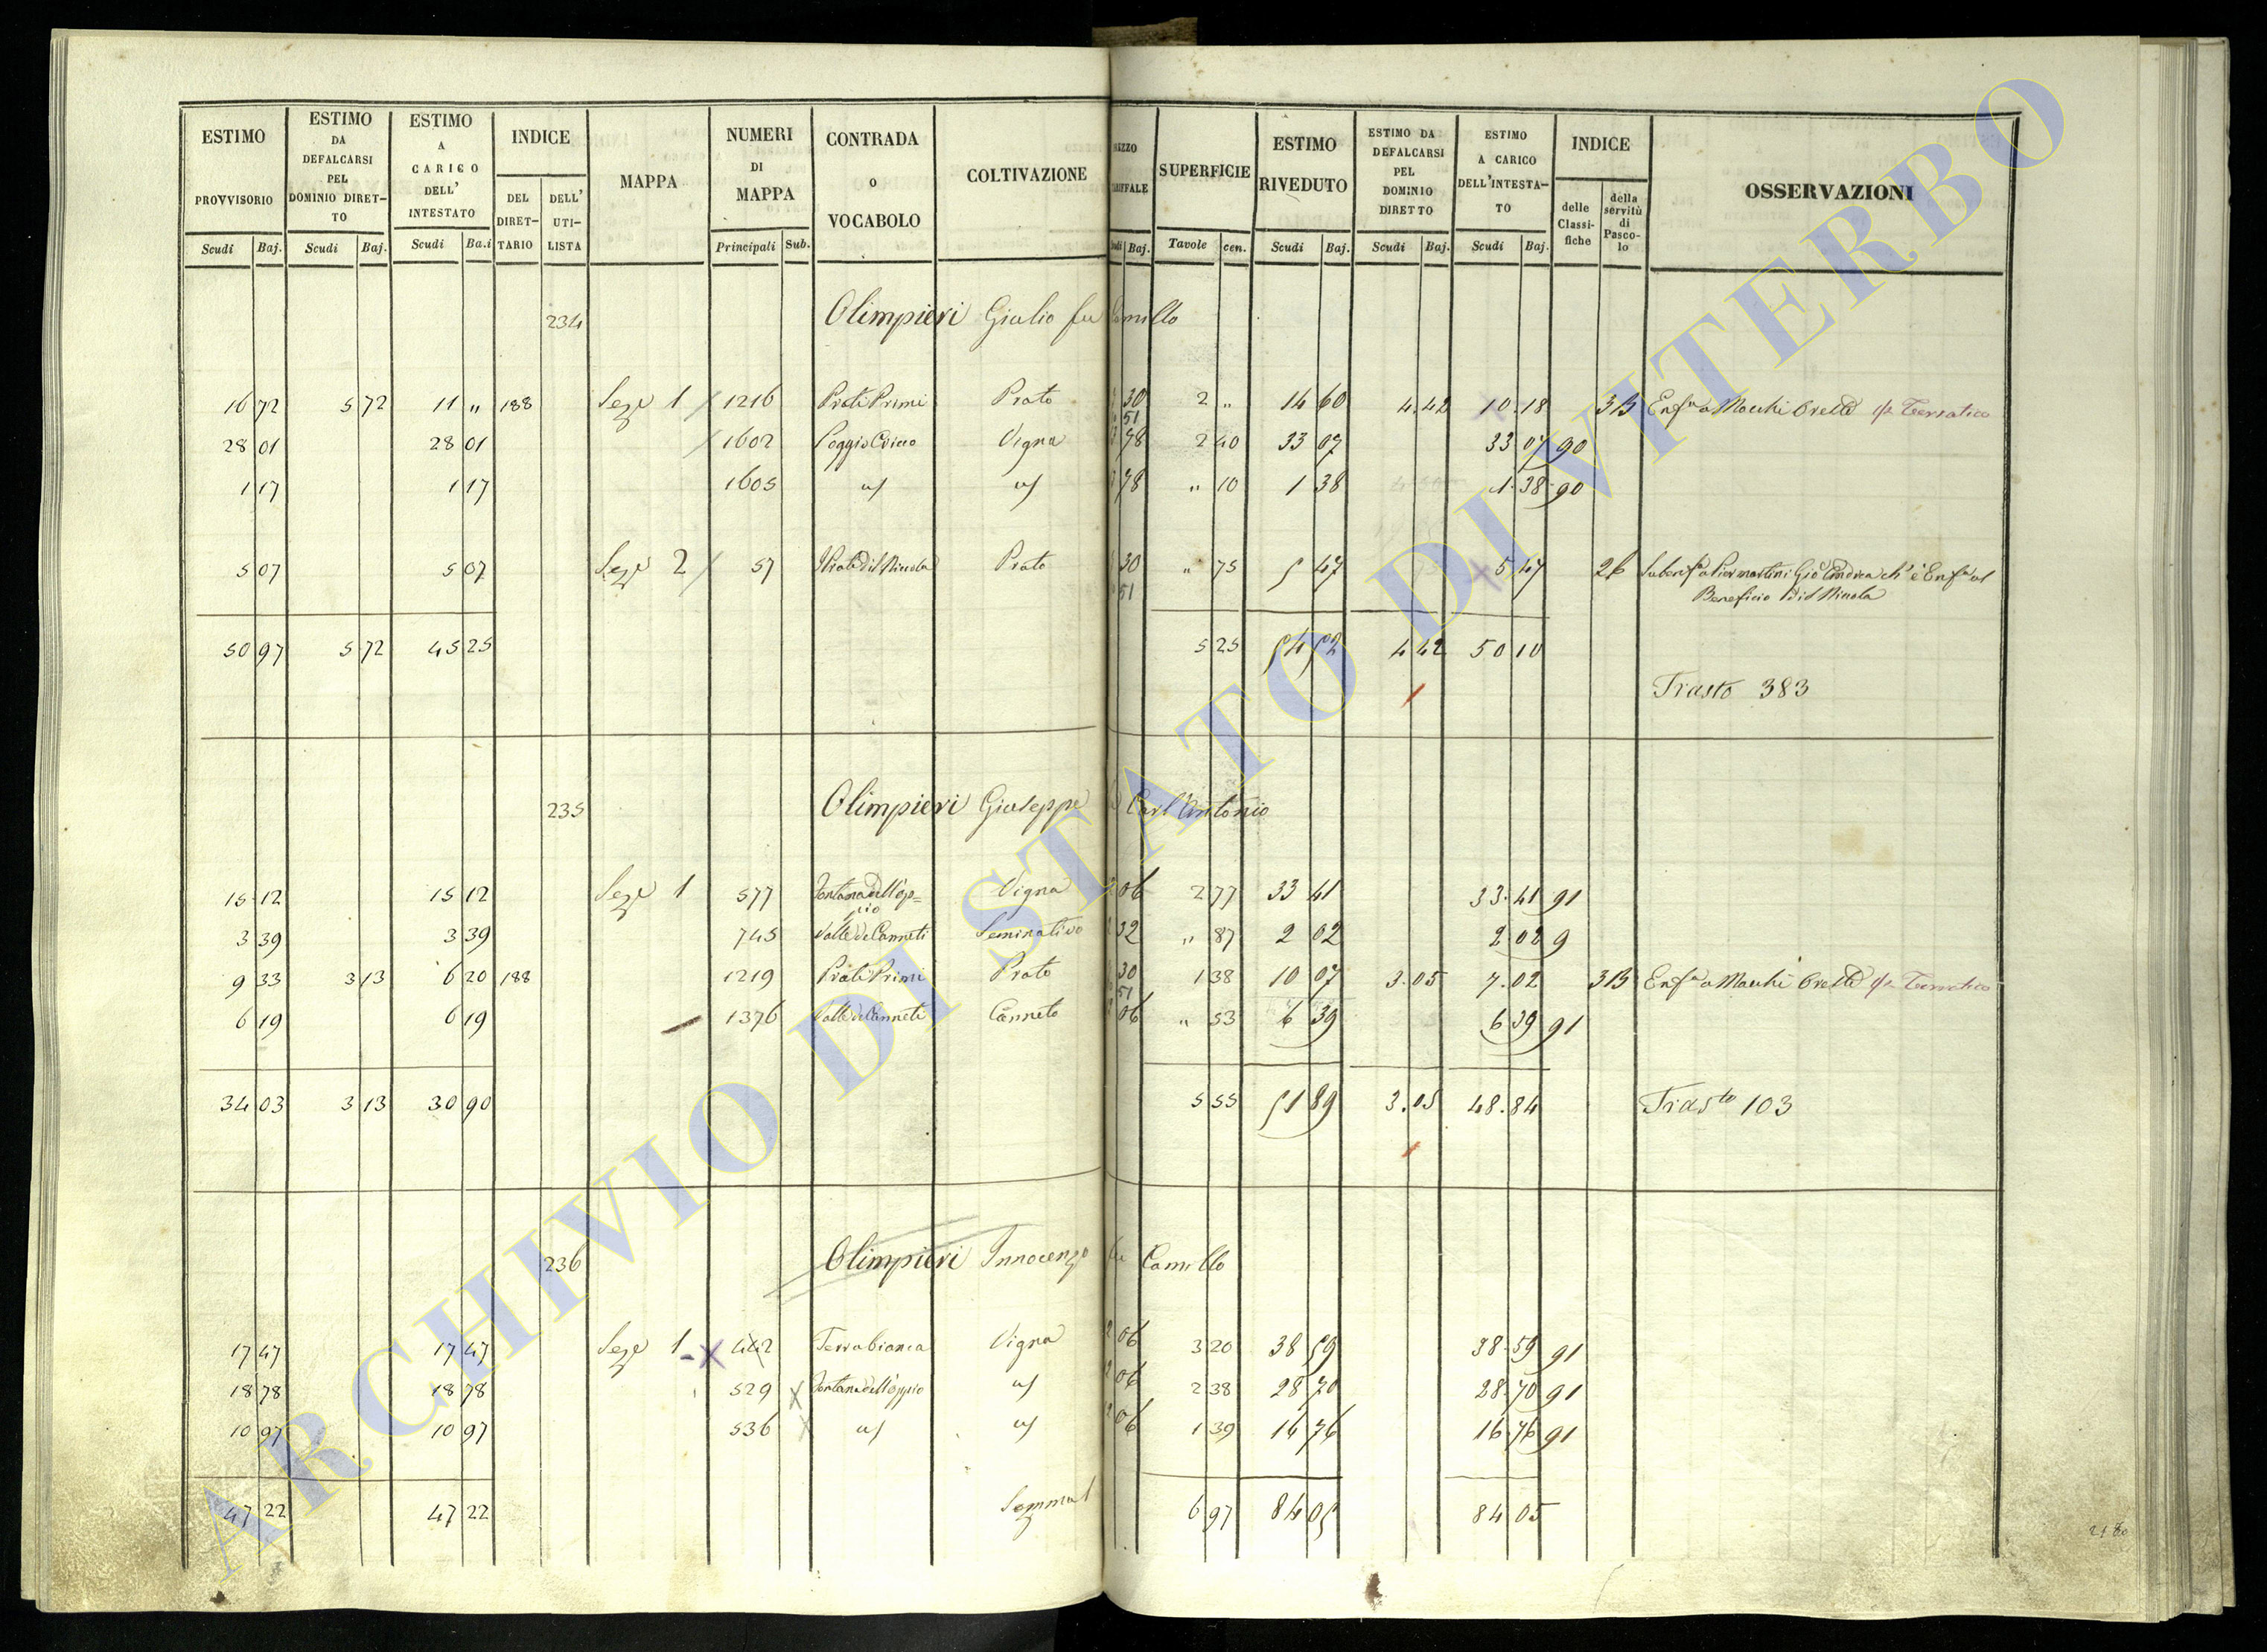 ESTIMO PROVVISORIO Scudi Baj.
ESTIMO DA DEFALCARSI PEL DOMINIO DIRETTO Scudi Baj.
ESTIMO A CARICO DELL' INTESTATO Scudi Ba.i
INDICE DEL DIRETTARIO DELL' UTILISTA
MAPPA
NUMERI DI MAPPA Principali Sub.
CONTRADA O VOCABOLO
COLTIVAZIONE
Baj.
SUPERFICIE Tavole cen.
ESTIMO RIVEDUTO Scudi Baj.
ESTIMO DA DEFALCARSI PEL DOMINIO DIRETTO Scudi Baj.
ESTIMO A CARICO DELL'INTESTATO Scudi Baj.
INDICE delle Classifiche della servitù di Pascolo
OSSERVAZIONI
234 Olimpieri Giulio fu Camillo
16 72 5 72 11 " 188 Seze 1 / 1216 Prati Primi Prato 30 51 2 " 14 60 4.42 10.18 3B Enfa a Macchi Oreste Terratico
28 01 28 01 / 1602 Poggio Vigna 78 2 40 33 07 33 07 90
1 17 1 17 1605 a/ a/ 78 " 10 1 38 1.38 90
5 07 5 07 Seze 2 / 57 Prato Prato 30 51 " 75 5 47 5 47 26 Subenfa Piermartini Gio Andrea ch'è Enfa al
Beneficio di S Nicola
50 97 5 72 45 25 5 25 54 52 4 42 50 10
Trasto 383
235 Olimpieri Giuseppe di Carl'Antonio
15 12 15 12 Seze 1 577 Fontana dell'Op=
pio Vigna 06 2 77 33 41 33.41 91
3 39 3 39 745 Valle de Canneti Seminativo 32 " 87 2 02 2 02 9
9 33 3 13 6 20 188 1219 Prati Primi Prato 30 51 1 38 10 07 3.05 7.02 3B Enfa a Macchi Oreste Terratico
6 19 6 19 1376 Valle de Canneti Canneto 06 " 53 6 39 6 39 91
34 03 3 13 30 90 5 55 51 89 3.05 48.84 Trasto 103
236 Olimpieri Innocenzo fu Camillo
17 47 17 47 Seze 1 - x 442 Terrabianca Vigna 06 3 20 38 59 38.59 91
18 78 18 78 529 x Fontana dell'Oppio a/ 06 2 38 28 70 28.70 91
10 97 10 97 536 a/ a/ 06 1 39 16 76 16 76 91
47 22 47 22 6 97 84 05 84 05
ARCHIVIO DI STATO DI VITERBO